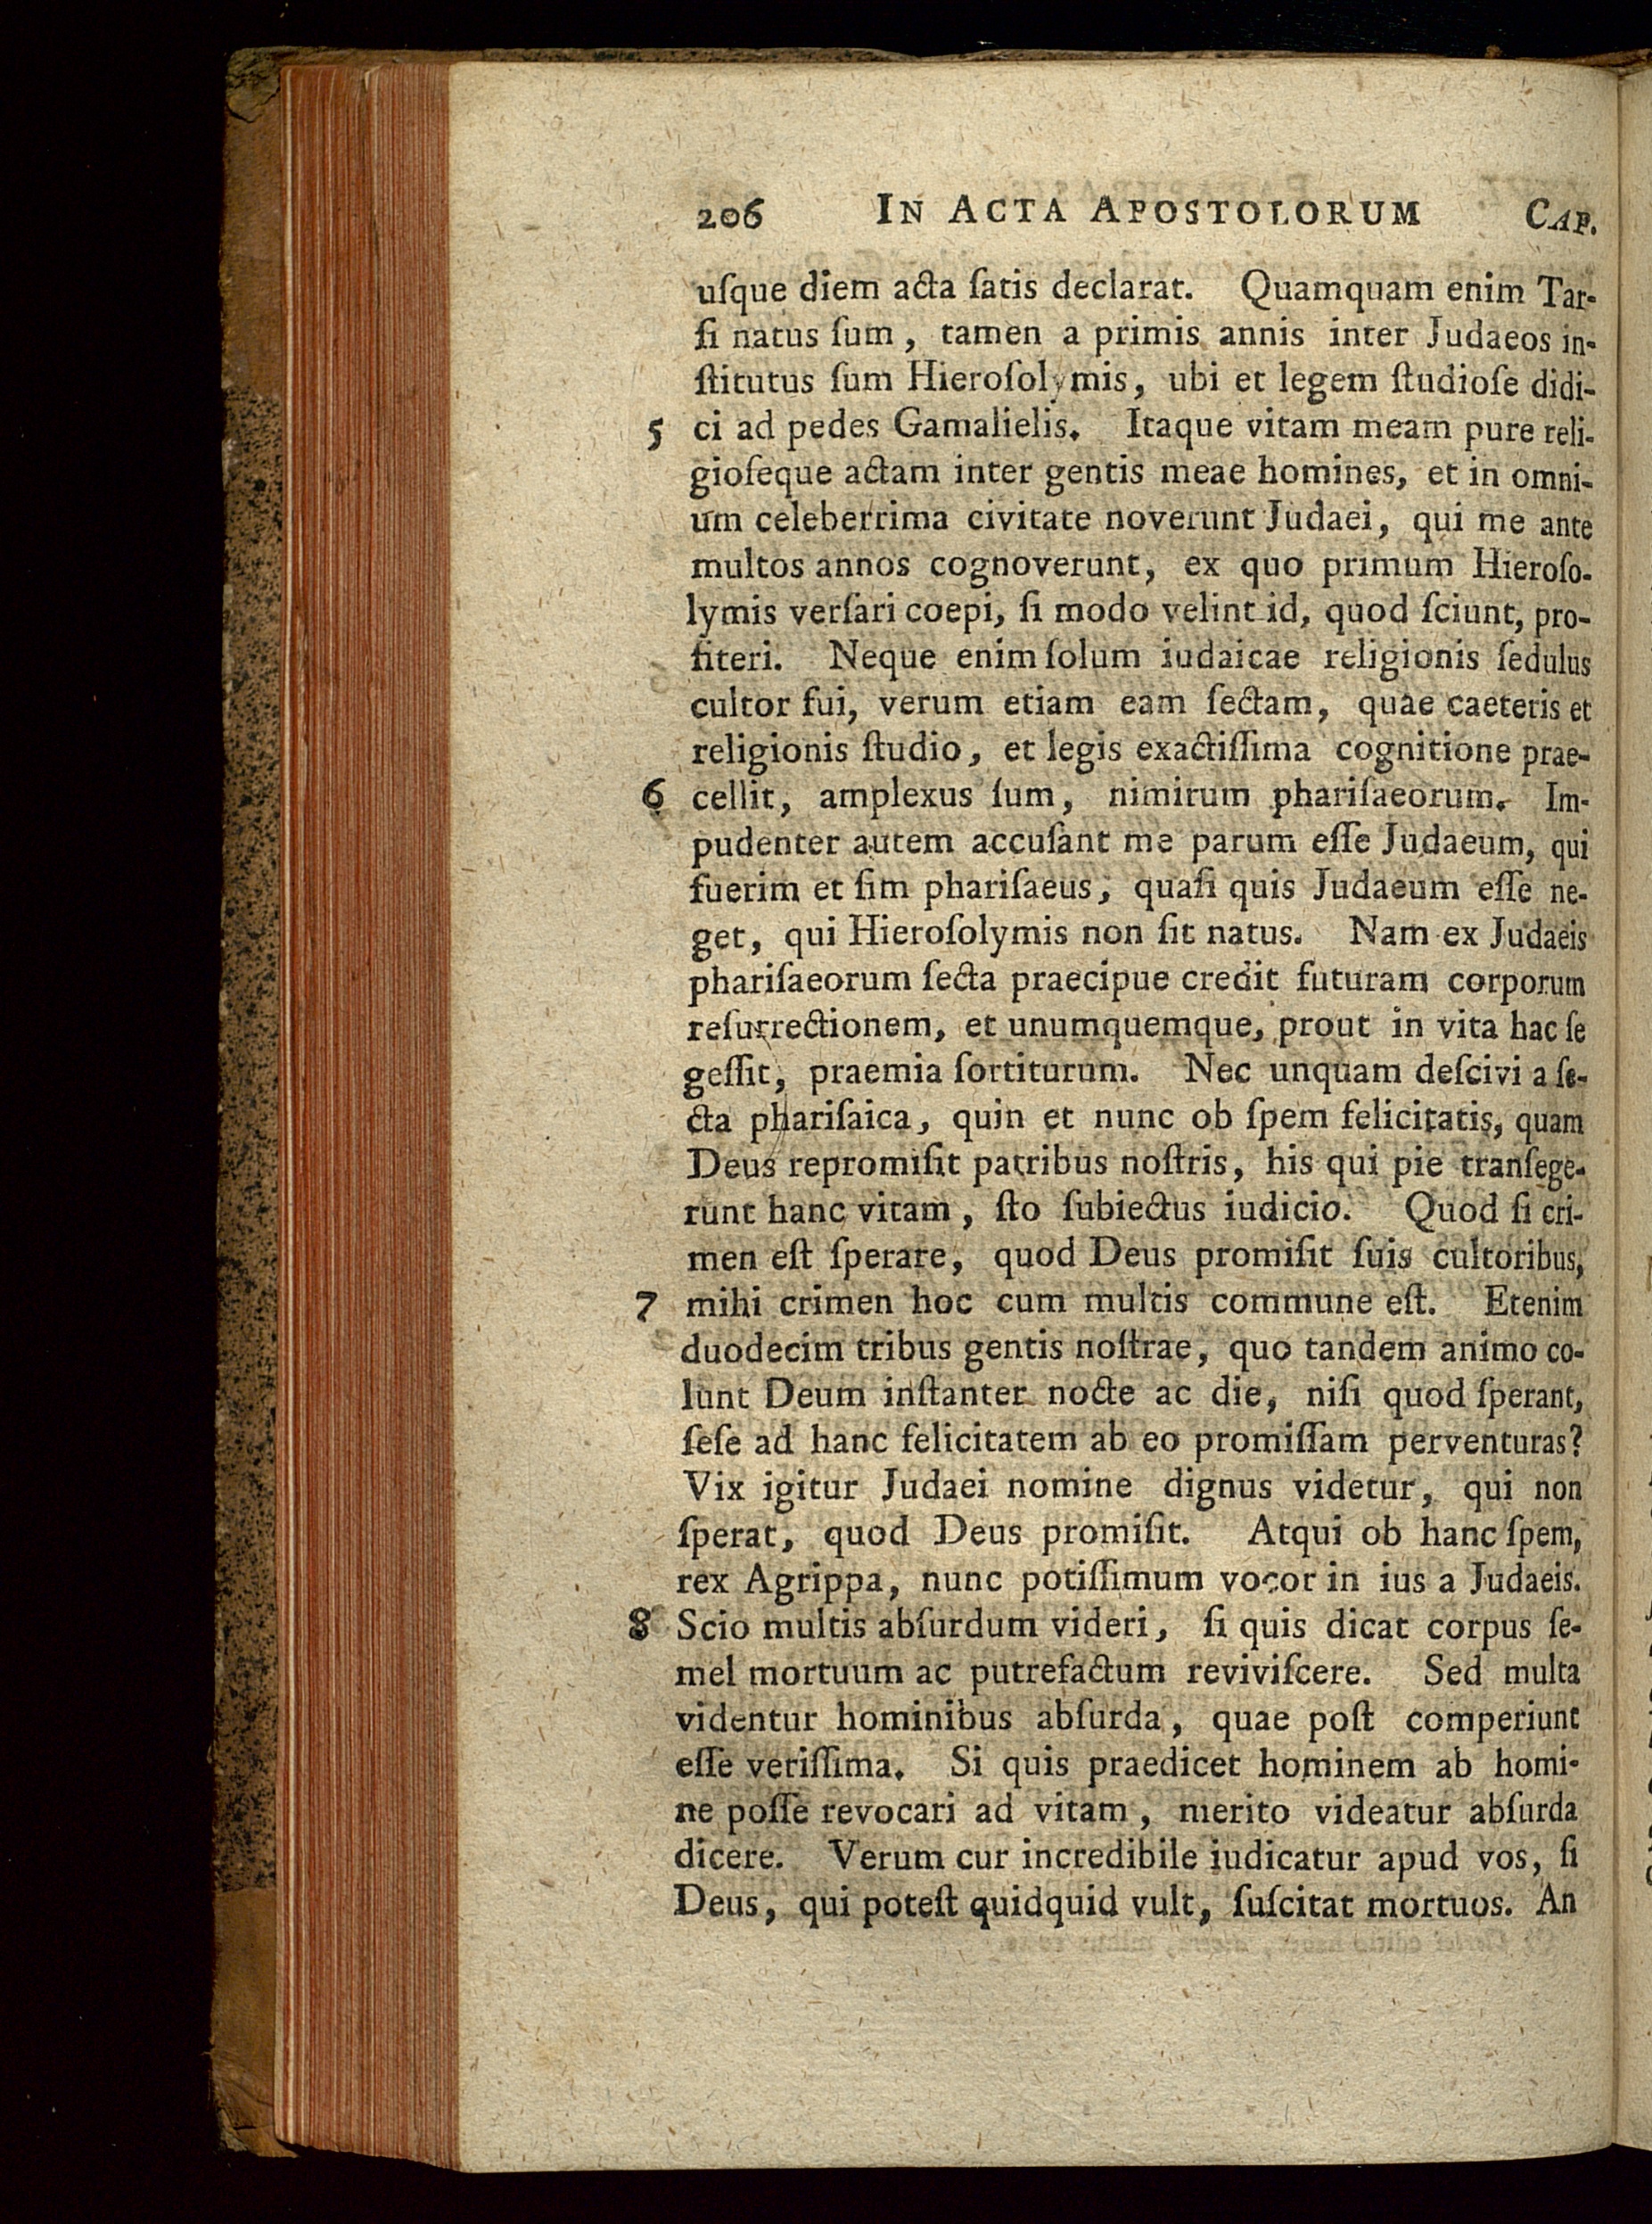 206 IN ACTA APOSTOLORUM CAP.
uſque diem acta ſatis declarat. Quamquam enim Tar-
ſi natus ſum, tamen a primis annis inter Judaeos in-
ſtitutus ſum Hieroſolymis, ubi et legem ſtudioſe didi-
5 ci ad pedes Gamalielis. Itaque vitam meam pure reli-
gioſeque actam inter gentis meae homines, et in omni-
um celeberrima civitate noverunt Judaei, qui me ante
multos annos cognoverunt, ex quo primum Hieroſo-
lymis verſari coepi, ſi modo velint id, quod ſciunt, pro-
fiteri. Neque enim ſolum iudaicae religionis ſedulus
cultor fui, verum etiam eam ſectam, quae caeteris et
religionis ſtudio, et legis exactiſſima cognitione prae-
6 cellit, amplexus ſum, nimirum phariſaeorum. Im-
pudenter autem accuſant me parum eſſe Judaeum, qui
fuerim et ſim phariſaeus, quaſi quis Judaeum eſſe ne-
get, qui Hieroſolymis non ſit natus. Nam ex Judaeis
phariſaeorum ſecta praecipue credit futuram corporum
reſurrectionem, et unumquemque, prout in vita hac ſe
geſſit, praemia ſortiturum. Nec unquam deſcivi a ſe-
cta phariſaica, quin et nunc ob ſpem felicitatis, quam
Deus repromiſit patribus noſtris, his qui pie tranſege-
runt hanc vitam, ſto ſubiectus iudicio. Quod ſi cri-
men eſt ſperare, quod Deus promiſit ſuis cultoribus,
7 mihi crimen hoc cum multis commune eſt. Etenim
duodecim tribus gentis noſtrae, quo tandem animo co-
lunt Deum inſtanter nocte ac die, niſi quod ſperant,
ſeſe ad hanc felicitatem ab eo promiſſam perventuras?
Vix igitur Judaei nomine dignus videtur, qui non
ſperat, quod Deus promiſit. Atqui ob hanc ſpem,
rex Agrippa, nunc potiſſimum vocor in ius a Judaeis.
8 Scio multis abſurdum videri, ſi quis dicat corpus ſe-
mel mortuum ac putrefactum reviviſcere. Sed multa
videntur hominibus abſurda, quae poſt comperiunt
eſſe veriſſima. Si quis praedicet hominem ab homi-
ne poſſe revocari ad vitam, merito videatur abſurda
dicere. Verum cur incredibile iudicatur apud vos, ſi
Deus, qui poteſt quidquid vult, ſuſcitat mortuos. An